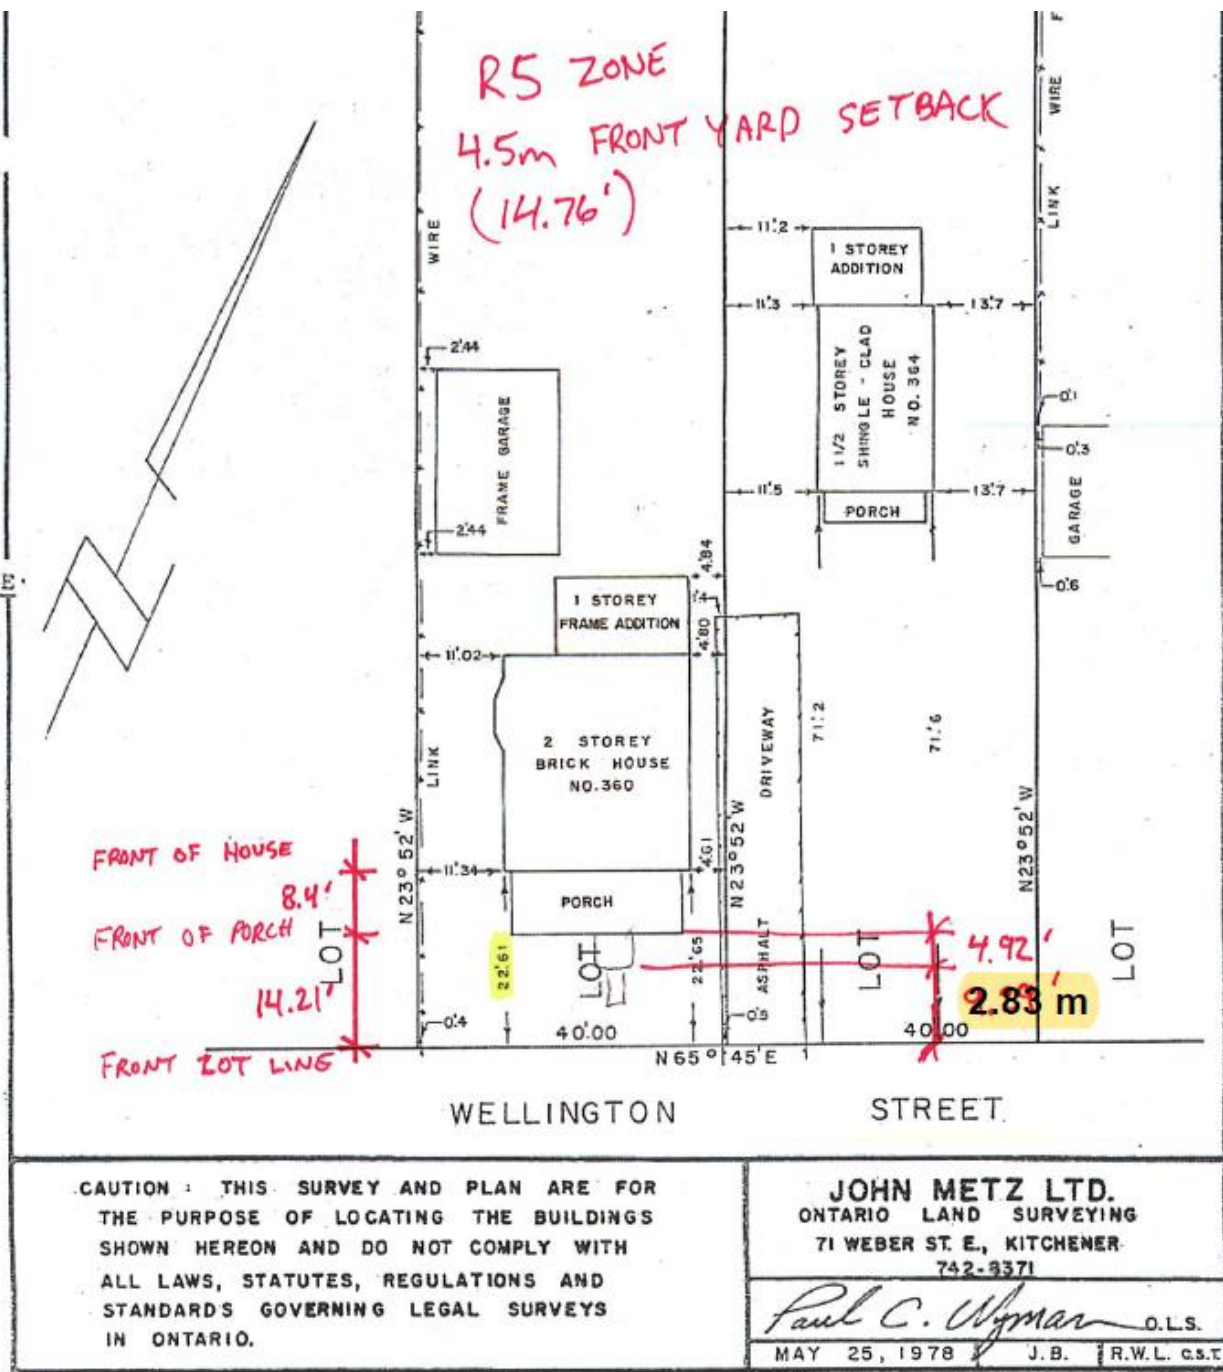 R5 ZONE
4.5m FRONT YARD SETBACK
(14.76')
WIRE
WIRE
LINK
11'.2
1 STOREY
ADDITION
11'.3
13'.7
2'.44
1 1/2 STOREY
SHINGLE - CLAD
HOUSE
NO. 364
FRAME GARAGE
0'.1
0'.3
11'.5
13'.7
PORCH
GARAGE
2'.44
4'.84
0'.6
1 STOREY
FRAME ADDITION
4'.80
11'.02
71'.2
71'.6
2 STOREY
BRICK HOUSE
NO. 360
DRIVEWAY
LINK
N23°52'W
N23°52'W
N23°52'W
FRONT OF HOUSE
11'.34
4'.61
8.4'
PORCH
FRONT OF PORCH
LOT
22'.61
LOT
22'.65
ASPHALT
LOT
4.92'
LOT
14.21'
2.83 m
0'.4
40'.00
40'.00
FRONT LOT LINE
N65°45'E
WELLINGTON STREET
CAUTION : THIS SURVEY AND PLAN ARE FOR
THE PURPOSE OF LOCATING THE BUILDINGS
SHOWN HEREON AND DO NOT COMPLY WITH
ALL LAWS, STATUTES, REGULATIONS AND
STANDARDS GOVERNING LEGAL SURVEYS
IN ONTARIO.
JOHN METZ LTD.
ONTARIO LAND SURVEYING
71 WEBER ST. E., KITCHENER
742-8371
Paul C. Wyman O.L.S.
MAY 25, 1978
J.B.
R.W.L. C.S.T.